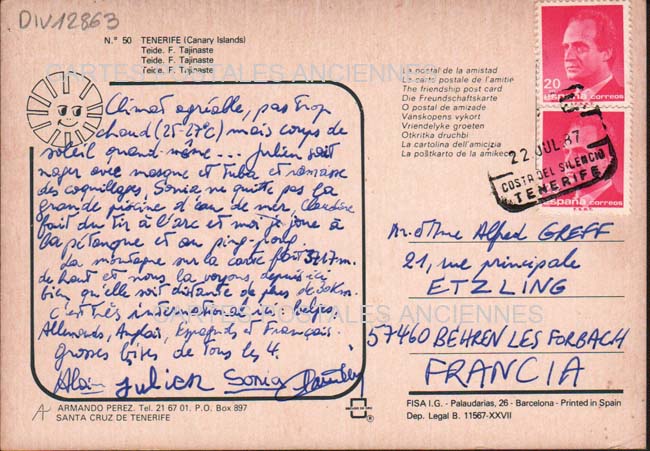 DIV12863
N.º 50 TENERIFE (Canary Islands)
Teide. F. Tajinaste
Teide. F. Tajinaste
Teide. F. Tajinaste
CARTES POSTALES ANCIENNES
Climat agréable, pas trop
chaud (25-27°C) mais coups de
soleil quand-même... Julien sait
nager avec masque et tuba et ramasse
des coquillages, Sonia ne quitte pas la
grande piscine d'eau de mer, Claudine
fait du tir à l'arc et moi je joue à
la pétanque et au ping-pong.
La montagne sur la carte fait 3717 m.
de haut et nous la voyons, depuis ici
bien qu'elle soit distante de plus de
C'est très international ici: belges,
Allemands, Anglais, Espagnols et Français.
Grosses bises de tous les 4.
Alain Julien Sonia Claudine
ARMANDO PEREZ. Tel. 21 67 01. P.O. Box 897
SANTA CRUZ DE TENERIFE
La postal de la amistad
La carte postale de l'amitie
The friendship post card
Die Freundschaftskarte
O postal de amizade
Vanskopens vykort
Vriendelyke groeten
Otkritka druchbi
La cartolina dell'amicizia
La poštkarto de la amikeco
20
España correos
España correos
22 JUL 87
COSTA DEL SILENCIO
TENERIFE
M. et Mme Alfred GREFF
21, rue principale
ETZLING
CARTES POSTALES ANCIENNES
57460 BEHREN LES FORBACH
FRANCIA
FISA I.G. - Palaudarias, 26 - Barcelona - Printed in Spain
Dep. Legal B. 11567-XXVII